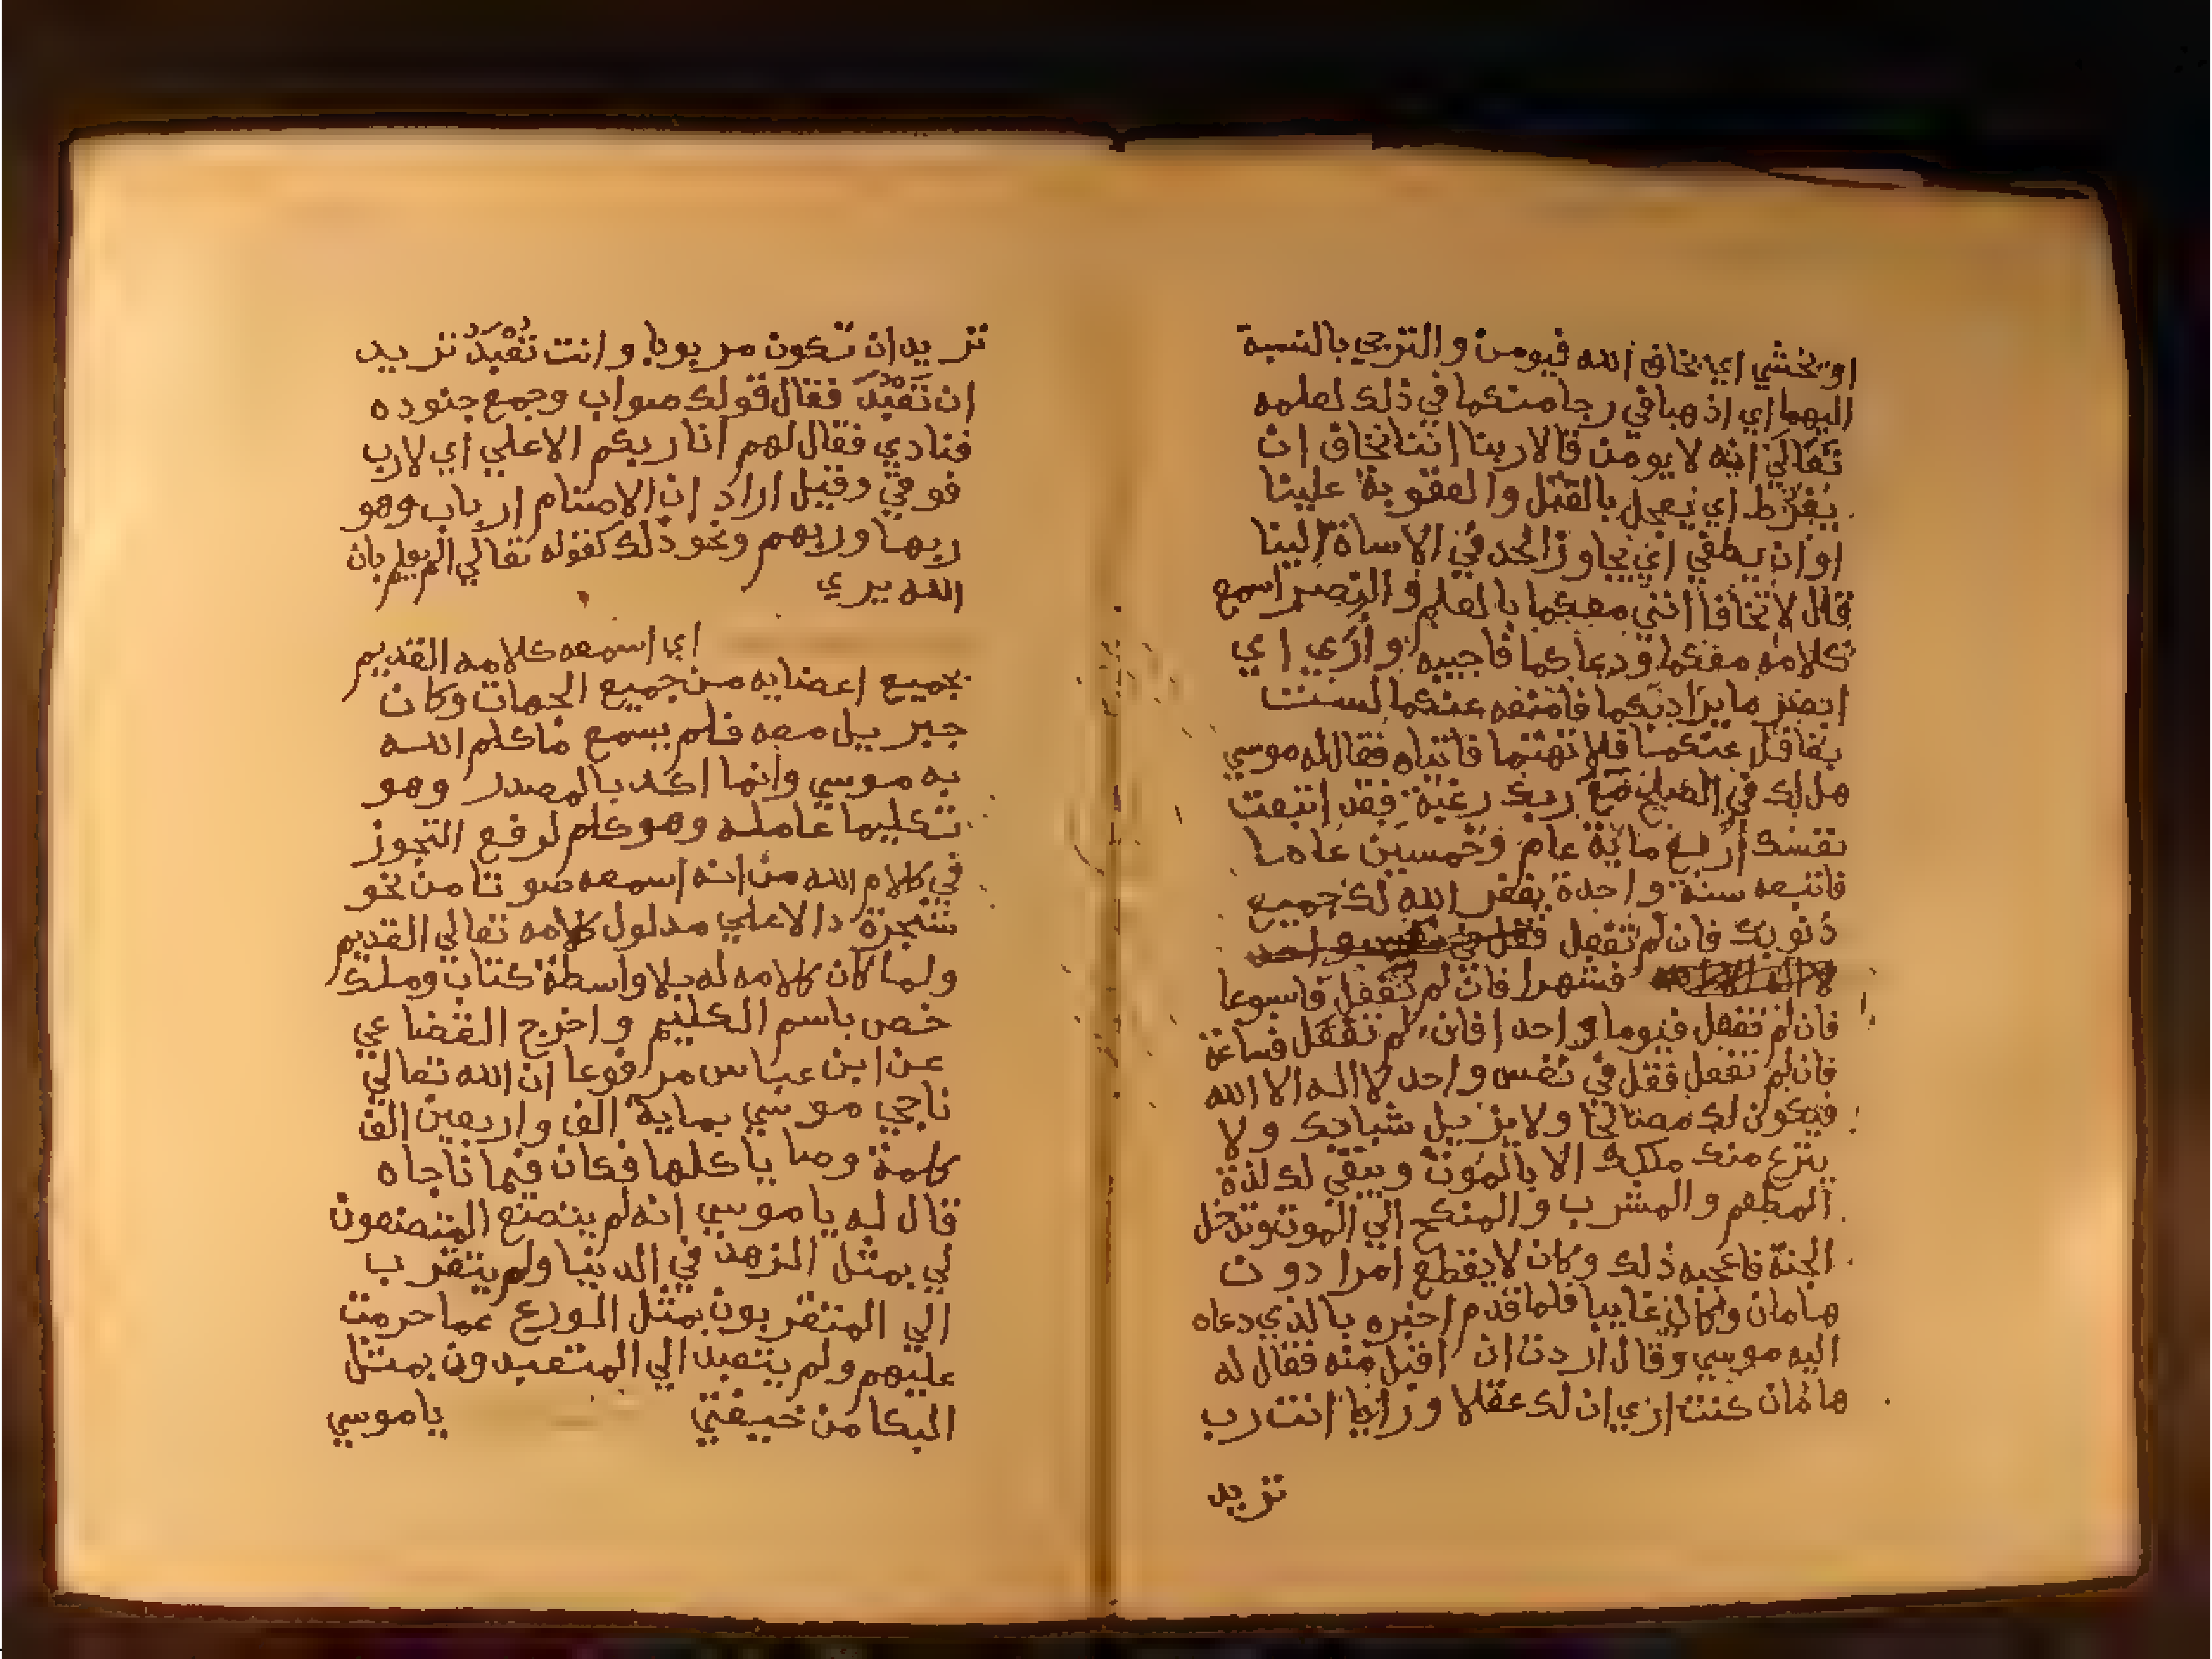 او يخشي اي يخاف الله فيومن والترجي بالنسبة
اليهما اي اذهبا في رجا منكما في ذلك لعلمه
تعالي انه لا يومن قالا ربنا اننا نخاف ان
يفرط اي يعجل بالقتل والعقوبة علينا
او ان يطغي اي يجاوز الحد في الاساة الينا
قال لا تخافا انني معكما بالعلم و النصر اسمع
كلامه معكما ودعا كما فاجيبه واري اي
ابصر ما يراد بكما فامنعه عنكما لست
بغافل عنكما فلا تهتما فاتياه فقال له موسي
هل لك في الصلح مع ربك رغبة فقد اتبعت
نفسك اربع ماية عام وخمسين عاما
فاتبعه سنة واحدة يغفر الله لك جميع
ذنوبك فان لم تفعل فقل في نفس واحد
فشهرا فان لم تفعل فاسبوعا
فان لم تفعل فيوما واحد افان لم تفعل فساعة
فان لم تفعل فقل في نفس واحد لا اله الا الله
فيكون لك مصالحا ولا يزيل شبابك ولا
ينزع منك ملكك الا بالموت ويبقي لك لذة
المطعم والمشرب والمنكح الي الموت وتدخل
الجنة فاعجبه ذلك وكان لا يقطع امرا دون
هامان وكان غايبا فلما قدم اخبره بالذي دعاه
اليه موسي وقال اردت ان اقبل منه فقال له
هامان كنت اري ان لك عقلا ورايا انت رب
تريد
تريد ان تكون مربوبا وانت تُعْبَدُ تريد
ان تَعْبُدَ فقال قولك صواب وجمع جنوده
فنادي فقال لهم انا ربكم الاعلي اي لا رب
فوقي وقيل اراد ان الاصنام ارباب وهو
ربها وربهم ونحو ذلك كقوله تعالي الم يعلم بان
الله يري
اي اسمعه كلامه القديم
بجميع اعضايه من جميع الجهات وكان
جبريل معه فلم يسمع ما كلم الله
به موسي وانما اكد بالمصدر وهو
تكليما عامله وهو كلم لرفع التجوز
في كلام الله من انه اسمعه صوتا من نحو
شجرة دالا علي مدلول كلامه تعالي القديم
ولما كان كلامه له بلا واسطة كتاب وملك
خص باسم الكليم واخرج القضاعي
عن ابن عباس مرفوعا ان الله تعالي
ناجي موسي بماية الف واربعين الف
كلمة وصايا كلها فكان فيما ناجاه
قال له يا موسي انه لم يتصنع المتصنعون
لي بمثل الزهد في الدنيا ولم يتقرب
الي المتقربون بمثل الورع عما حرمت
عليهم ولم يتعبد الي المتعبدون بمثل
البكا من خيفتي يا موسي